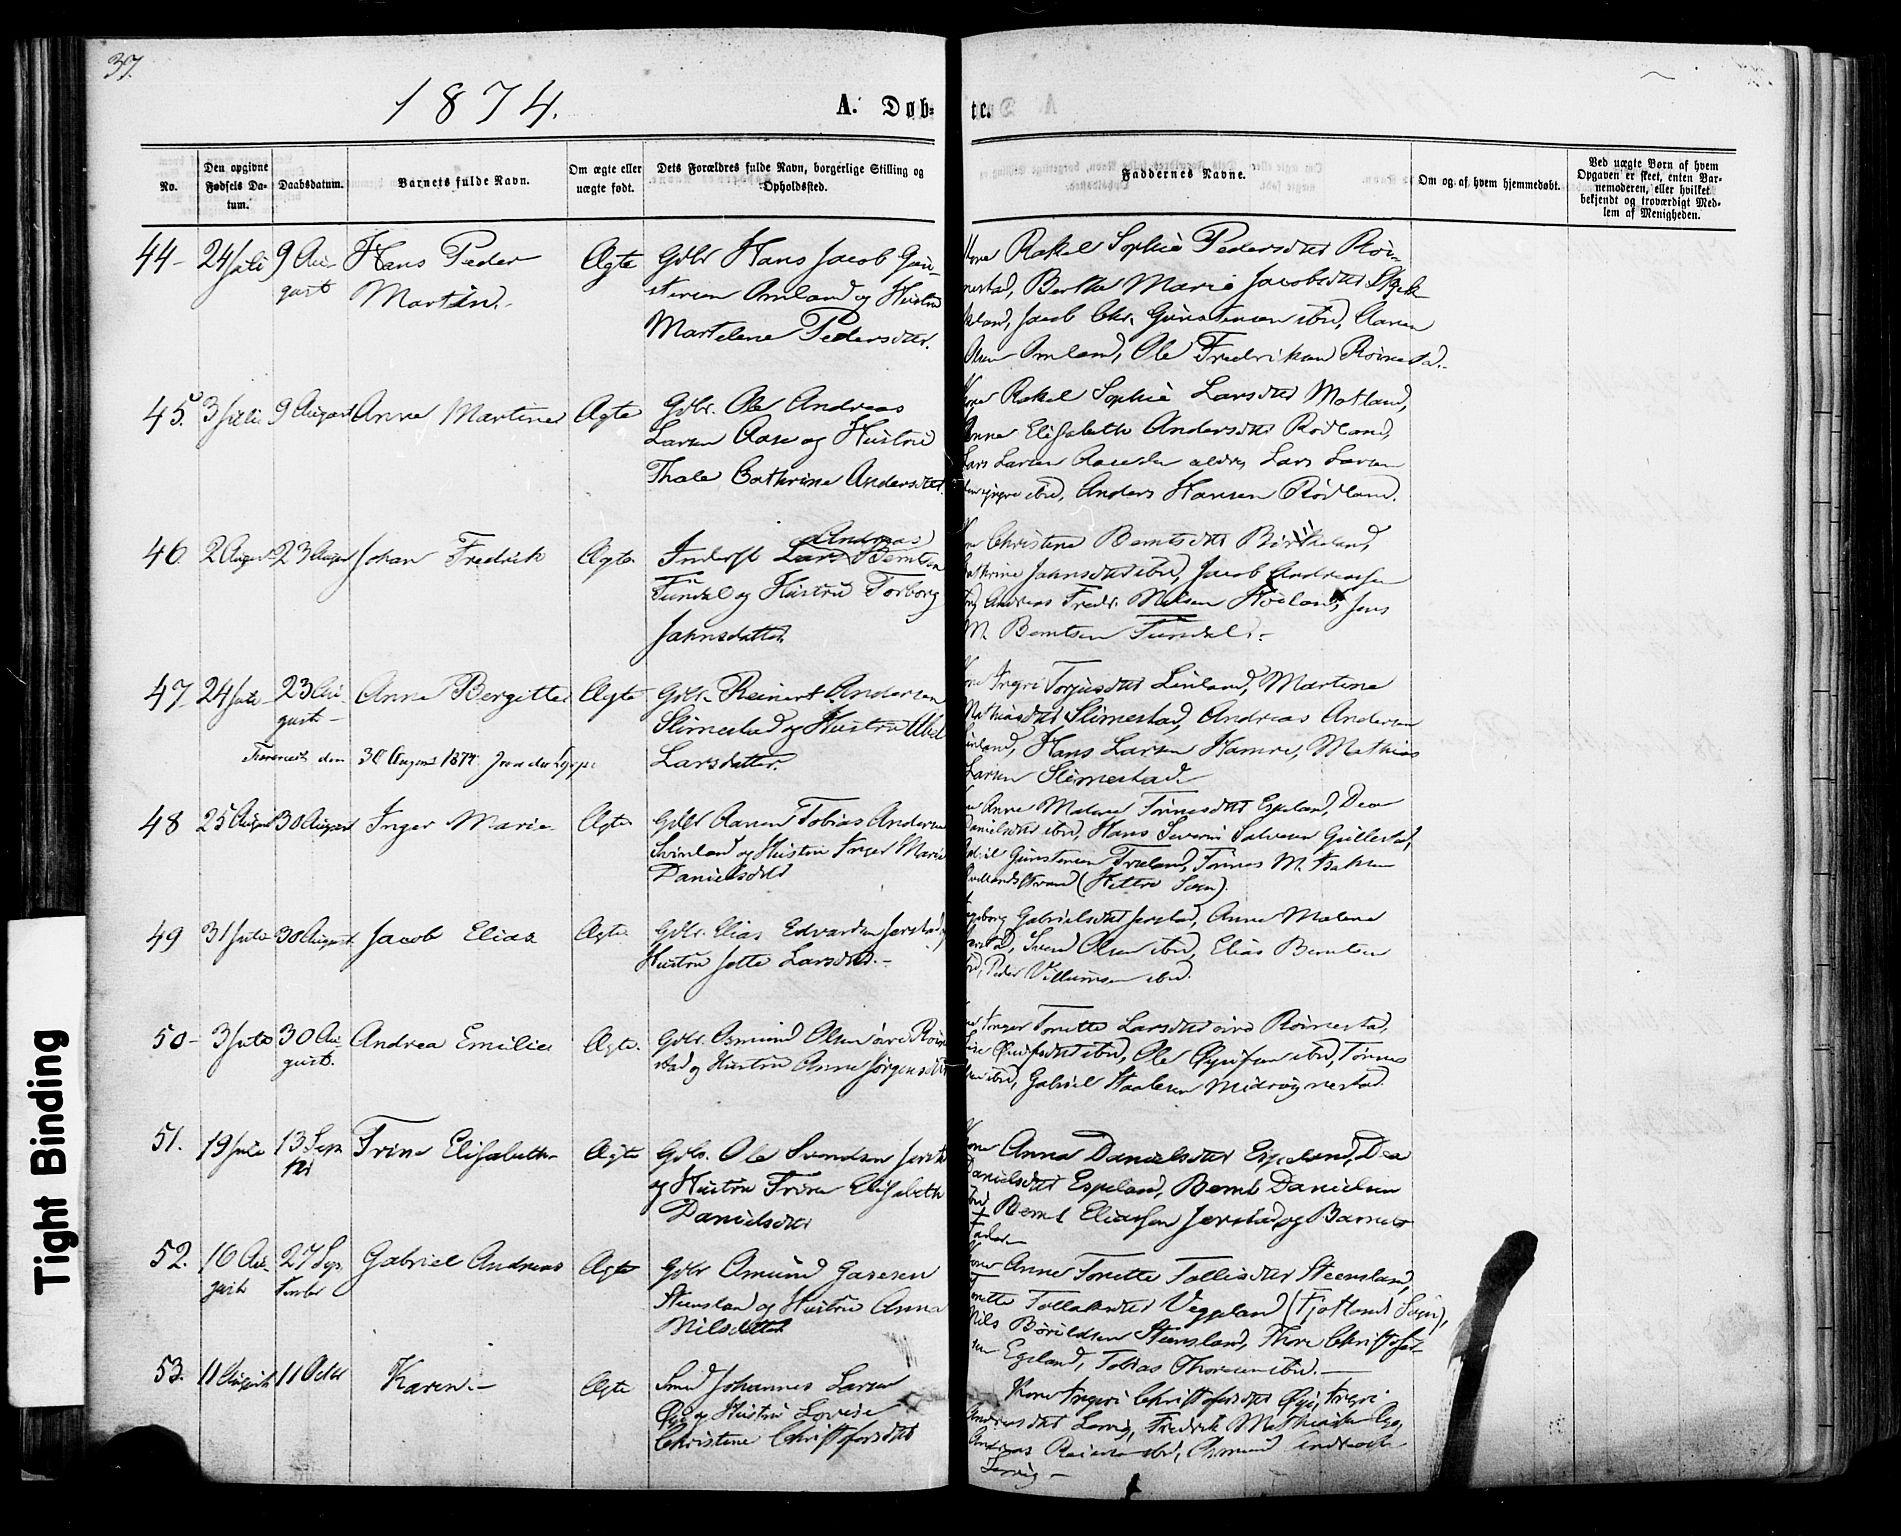 37.
1874.
A. Døb=
te.
No.
Den opgivne Fødsels Da-tum.
Daabsdatum.
Barnets fulde Navn.
Om ægte eller uægte født.
Dets Forældres fulde Navn, borgerlige Stilling og Opholdssted.
Faddernes Navne.
Om og af hvem hjemmedøbt.
Ved uægte Børn af hvem Opgaven er skeet, enten Bar-nemoderen, eller hvilket bekjendt og troværdigt Med-lem af Menigheden.
44- 24 Juli 9 Au- Hans Peder Ægte Gdbr Hans Jacob Gun-
gust Martin.- stensen Omland og Hustru
Martelene Pedersdttr.
Kone Rakel Sophie Pedersdttr Röi-
nestad, Berthe Marie Jacobsdttr
land, Jacob Chr. Gunstensen ibd, Aanen
Olsen Omland, Ole Fredriksen Röinestad.
45. 3 Juli 9 August Anne Martine Ægte Gdbr. Ole Andreas
Larsen Aase og Hustru
Thale Cathrine Andersdttr.
Kone Rakel Sophie Larsdttr Motland,
Anne Elisabeth Andersdttr Rödland,
Lars Larsen Aase den ældre, Lars Larsen
den yngre ibd, Anders Hansen Rödland.
46. 2 August 23 August Johan Fredrik Ægte Inderst Lars Andreas Berntsen
Fündal og Hustru Torborg
Jahnsdatter.
Christine Berntsdttr Birkeland,
Cathrine Jahnsdttr ibd, Jacob Andreassen
ibd, Andreas Fredr. Nilsen Höiland, Jens
M. Berntsen Fündal.-
47 24 Juli 23 Au- Anne Bergitte Ægte Gdbr. Reinert Andersen
gust- Slimestad og Hustru Abel
30 August 1874 Larsdatter.
Kone Ingri Torjusdttr Linland, Martine
Mathiasdttr Slimestad, Andreas Andersen
Linland, Hans Larsen Hamre, Mathias
Larsen Slimestad.
48 25 August 30 August Inger Marie Ægte Gdbr Aanen Tobias Andersen
Svinland og Hustru Inger Marie
Danielsdttr
Anne Malene Tönnesdttr Espeland, Dea
Danielsdttr ibd, Hans Severin Salvesen Gullestad,
Gunstensen Træland, Tönnes M.
(Hitterö Sogn).
49 31 Juli 30 August Jacob Elias Ægte Gdbr. Elias Edvardsen Jerstad og
Hustru Jette Larsdttr.-
Ingeborg Gabrielsdttr Jerstad, Anne Malene
Jerstad, Svend Olsen ibd, Elias Berntsen
ibd, Peder Villumsen ibd.
50- 3 Juli 30 Au- Andrea Emilie Ægte. Gdbr. Osmund Olsen övre Röine-
gust. stad og Hustru Anne Jörgensdttr
Inger Tonette Larsdttr övre Röinestad,
ibd, Ole ibd, Tönnes
ibd, Gabriel Staalesen Midröynestad
51. 19 Juli 13 Sep. Trine Elisabeth Ægte Gdbr. Ole Svendsen Jerstad
og Hustru Trine Elisabeth
Danielsdttr
Kone Anna Danielsdttr Espeland, Dea
Danielsdttr Espeland, Bernt Danielsen
ibd, Bernt Eliassen Jerstad og Barnets
Fader
52. 16 Au- 27 Sep. Gabriel Andreas Ægte Gdbr Osmund Gasesen
gust tember Steensland og Hustru Anna
Nilsdatter
Kone Anne Tonette Tollisdttr Steensland,
Tonette Tollaksdttr Veggeland (Fjotland Sogn),
Nils Böieldsen Steensland, Thore Christoffer-
sen Egeland, Tobias Thoresen ibd.-
53. 11 August 11 Octbr Karen.- Ægte Smed Johannes Larsen
Öye og Hustru Lovise
Christine Christoffersdttr
Kone Ingeri Christoffersdttr Öye, Ingri
Andreasdttr Lervig, Fredrik Mathiassen Öye,
Andreas ibd, Osmund
Lervig-
Tight Binding